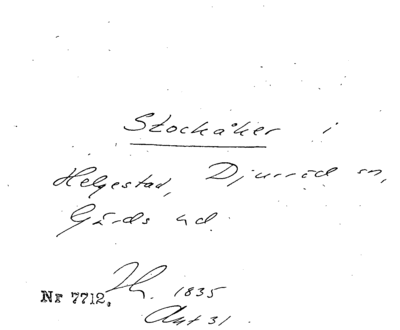 Stockåker i
Helgestad, Djurröd sn,
Gärds hd.
Nr 7712. Th. 1835
Akt 31.